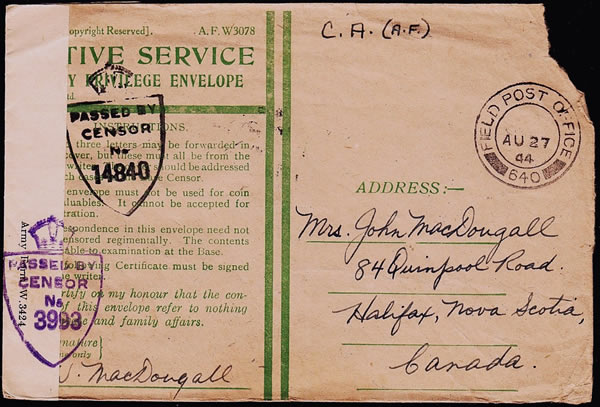 opyright Reserved]. A.F.W3078
TIVE SERVICE
Y PRIVILEGE ENVELOPE
PASSED BY
CENSOR
No
14840
INSTRUCTIONS.
three letters may be forwarded in
cover, but these must all be from the
should be addressed
Censor.
envelope must not be used for coin
aluables. It cannot be accepted for
ration.
respondence in this envelope need not
ensored regimentally. The contents
able to examination at the Base.
lowing Certificate must be signed
e writer.
rtify on my honour that the con-
of this envelope refer to nothing
and family affairs.
gnature
me only
J. MacDougall
PASSED BY
CENSOR
No
3993
Army Form W. 3424
C.A. (A.F.)
FIELD POST OFFICE
AU 27
44
640
ADDRESS:—
Mrs. John MacDougall
84 Quinpool Road.
Halifax, Nova Scotia,
Canada.